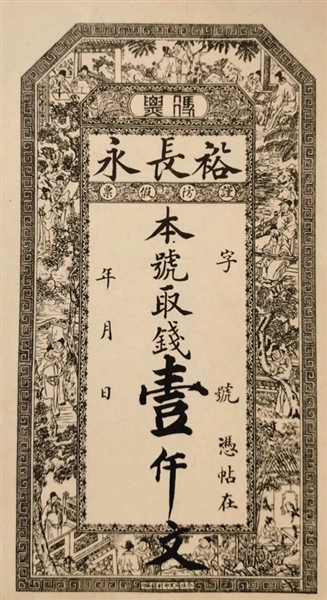 裕長永
謹防假票
字 號憑帖在
本號取錢壹仟文
年月日